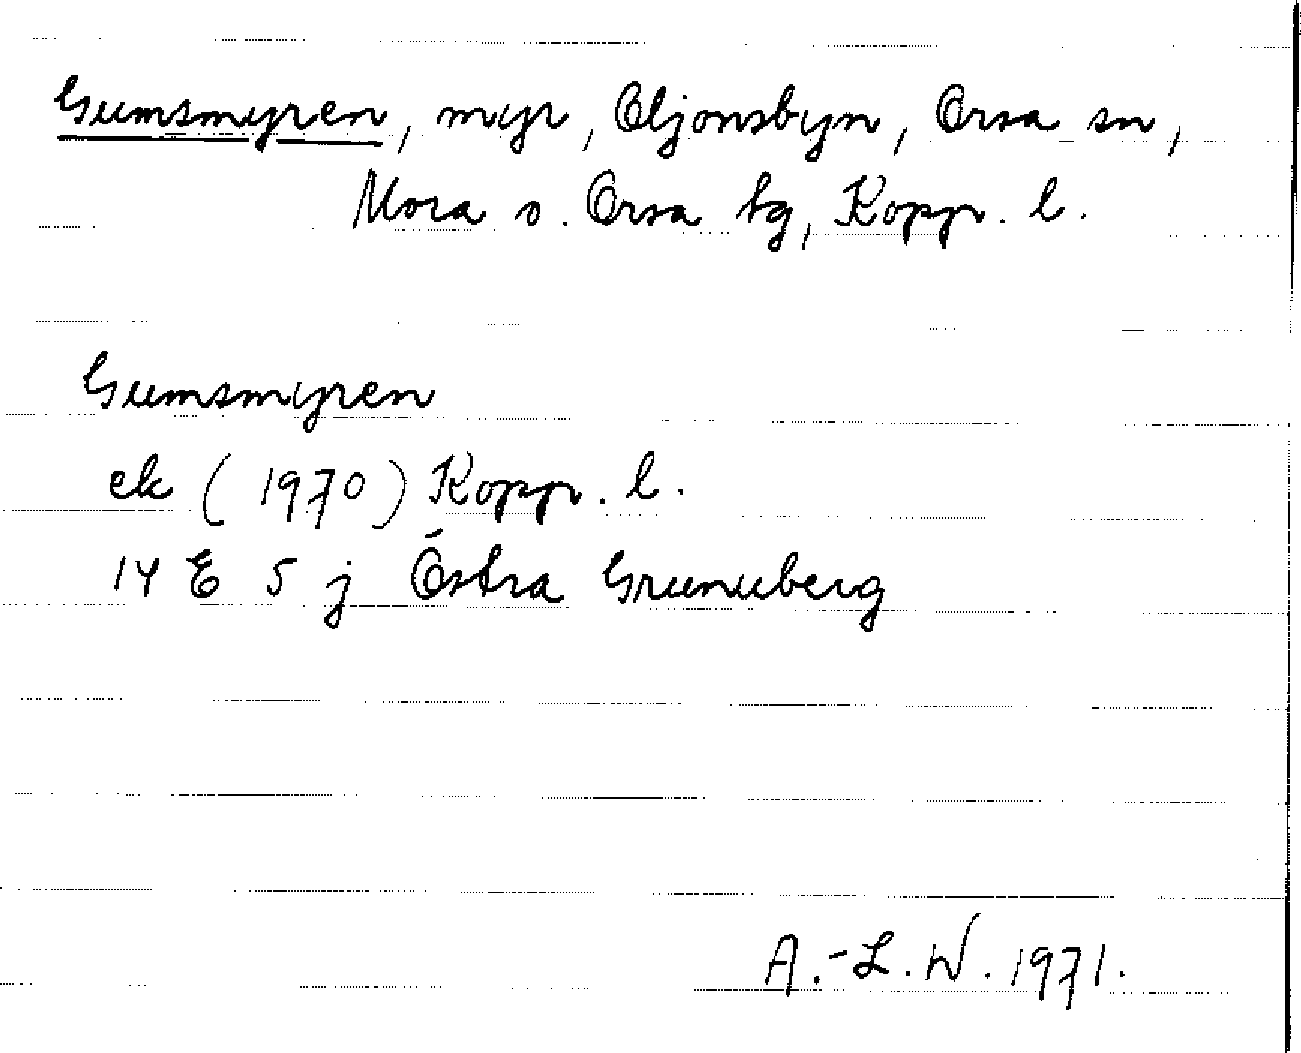 Gumsmyren, myr, Oljonsbyn, Orsa sn,
Mora o. Orsa tg, Kopp. l.
Gumsmyren
ek (1970) Kopp. l.
14 E 5 j Östra Grunuberg
A.-L. W. 1971.